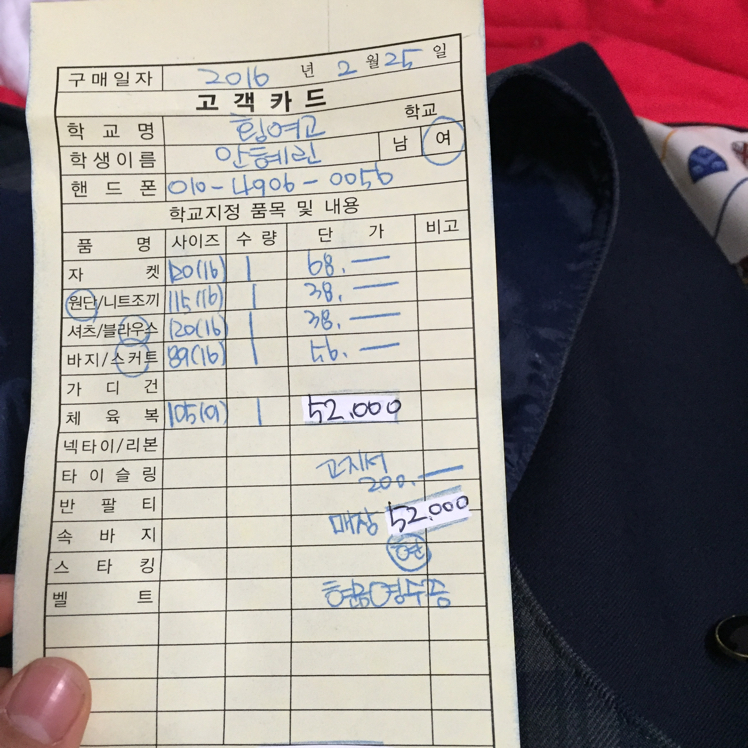 구매일자 2016 년 2 월 25 일
고객카드
학교명 학교
학생이름 안혜린 남 여
핸드폰 010-4906-0056
학교지정 품목 및 내용
품명 사이즈 수량 단가 비고
자켓 120(16) 1 68.—
원단/니트조끼 115(16) 1 38.—
셔츠/블라우스 120(16) 1 38.—
바지/스커트 89(16) 1 56.—
가디건
체육복 105(01) 1 52.000
넥타이/리본
타이슬링 고지서
200.—
반팔티
매장 52.000
속바지
스타킹
벨트 현금영수증